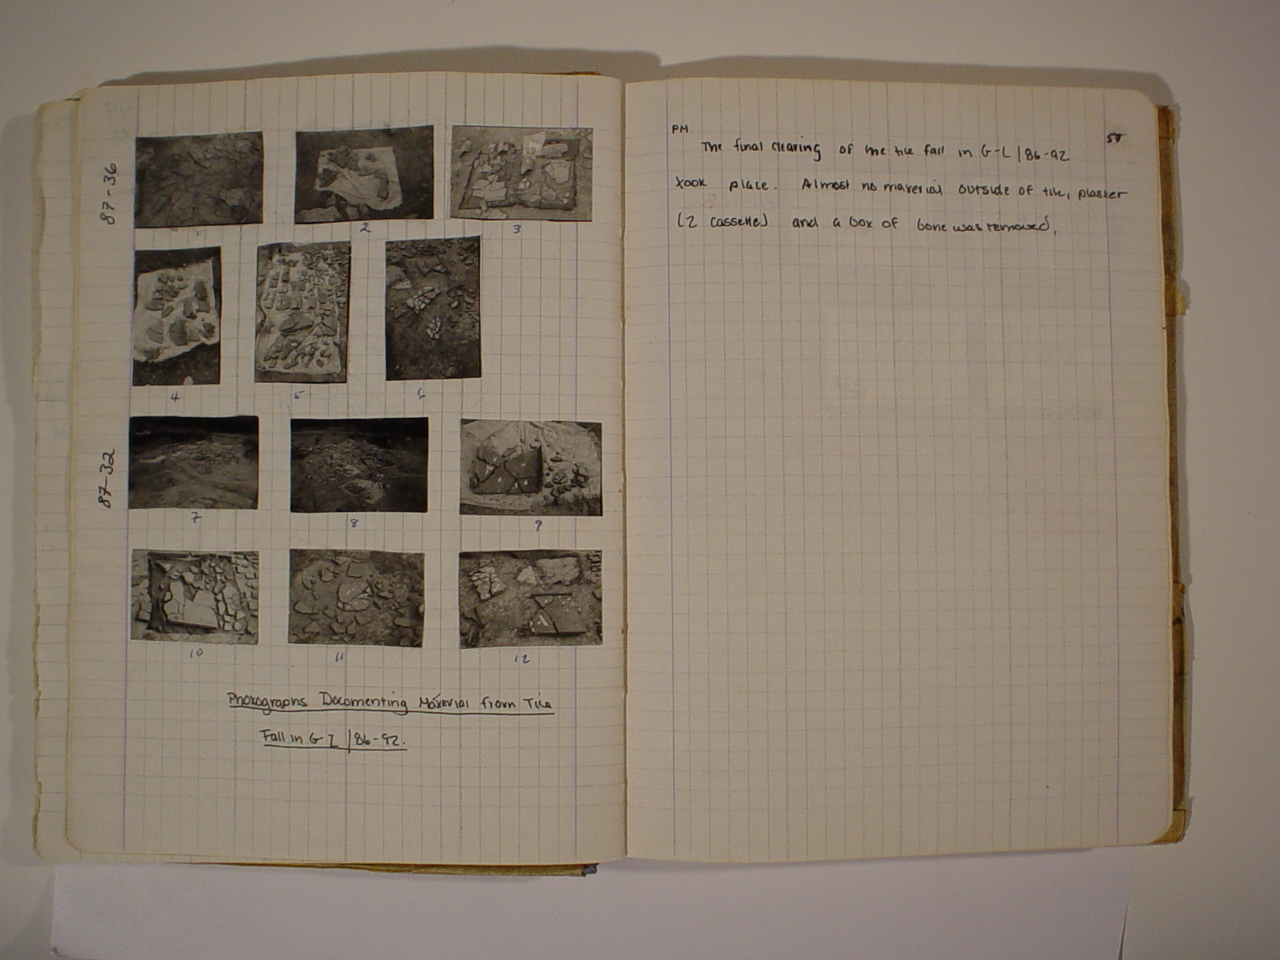 87-36
1
2
3
4
5
6
87-32
7
8
9
10
11
12
Photographs Documenting Material from Tile
Fall in G-L/86-92.
PM
57
The final clearing of the tile fall in G-L/86-92
took place. Almost no material outside of tile, plaster
(2 cassette) and a box of bone was removed.